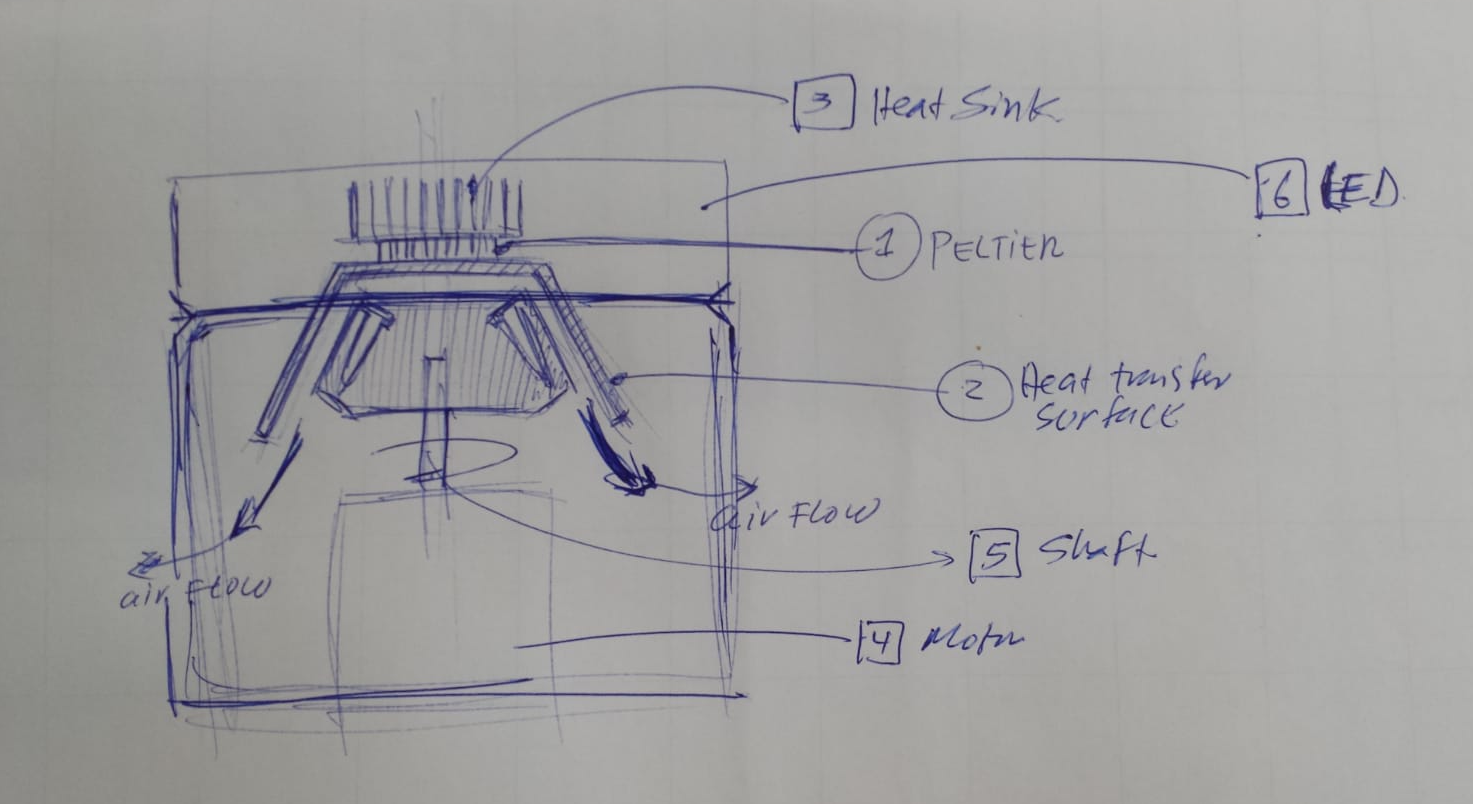 3 Heat Sink
6 LED
1 PELTIER
2 Heat transfer
surface
air FLOW
5 Shaft
air FLOW
4 Motor